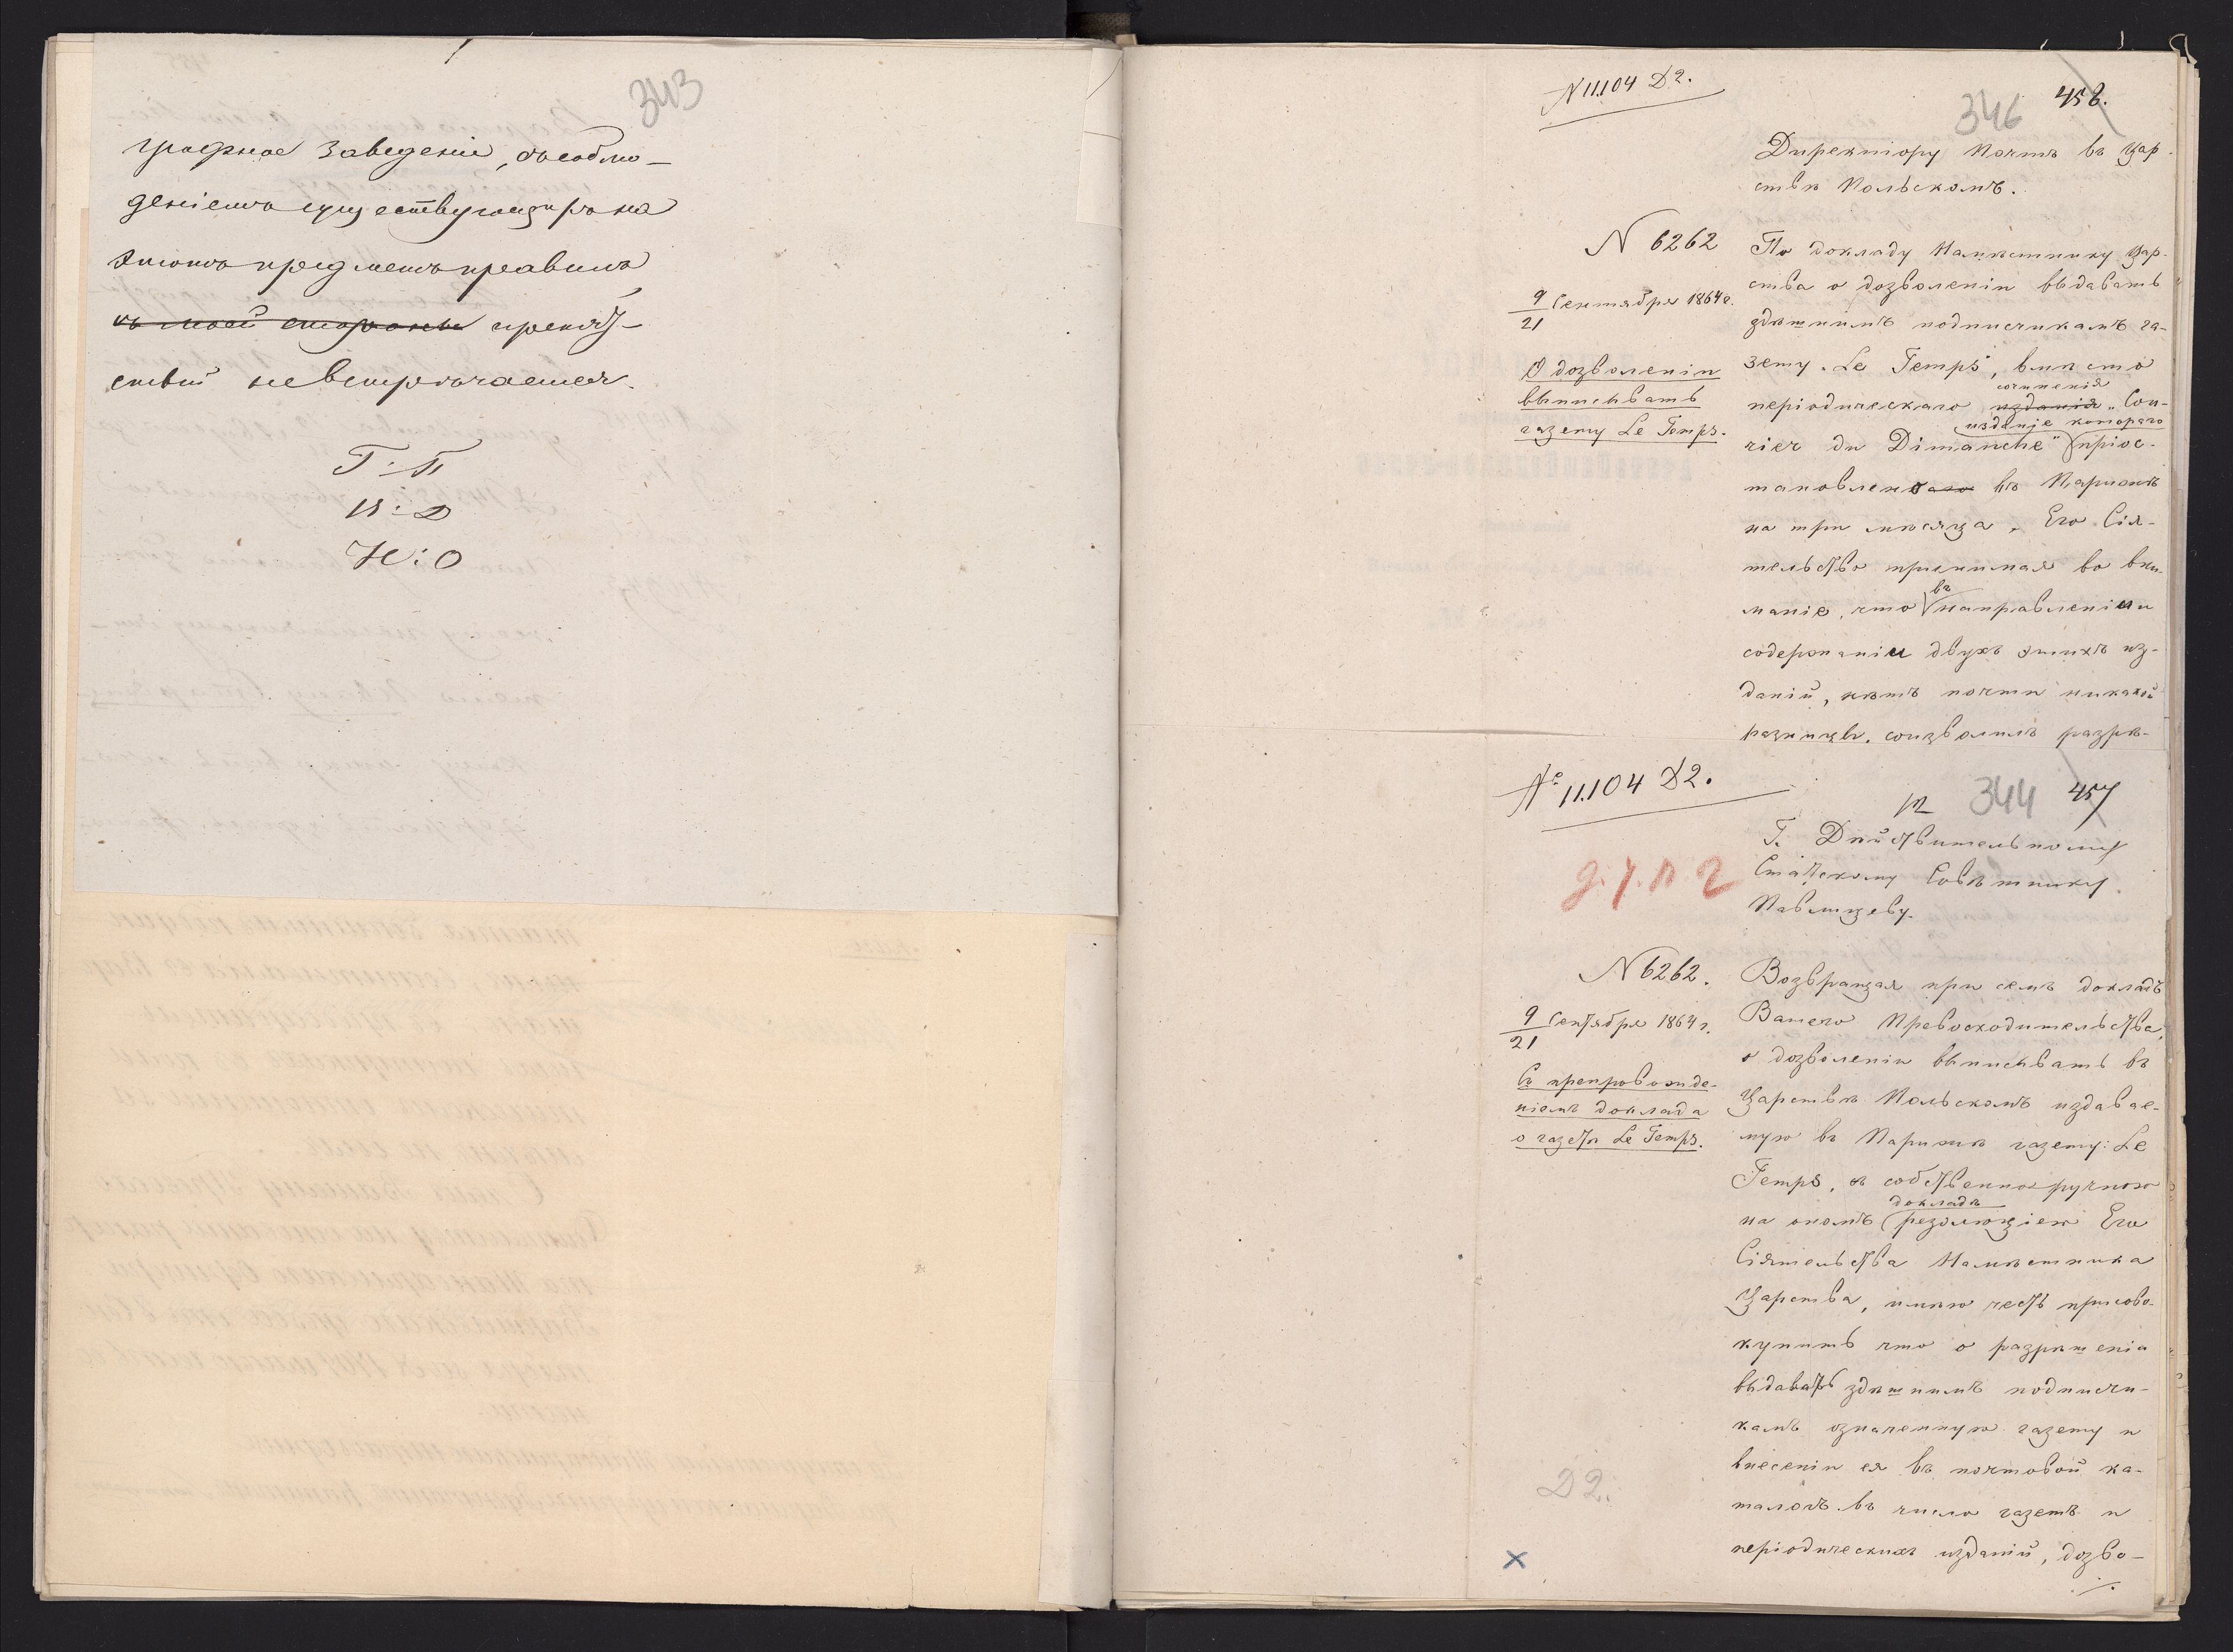 343
графное заведеніе, съ соблю-
деніемъ существующихъ на
этотъ предметъ правилъ,
съ моей стороны препят-
ствій невстрѣчается.
Г: П
И: Д
Н: О
N 11104 D2.
346 456.
Директору Почтъ въ Цар-
ствѣ Польскомъ.
N 6262
9/21 Сентября 1864 г.
О дозволеніи
выписывать
газету Le Temps.
По докладу Намѣстнику Цар-
ства о дозволеніи выдавать
здѣшнимъ подписчикамъ га-
зету „Le Temps", вмѣсто
сочиненія
періодическаго изданія „Cou-
изданіе котораго
rier du Dimanche" пріос-
тановлено въ Парижѣ
на три мѣсяца, Его Сія-
тельство принимая во вни-
въ
маніе, что направленіи и
содержаніи двухъ этихъ из-
даній, нѣтъ почти никакой
разницы, соизволилъ разрѣ-
№ 11.104 D2.
344 457
Г. Дѣйствительному
Статскому Совѣтнику
Павлищеву.
N 6262.
9/21 Сентября 1864 г.
Съ препровожде-
ніемъ доклада
о газетѣ Le Temps.
Возвращая при семъ докладъ
Вашего Превосходительства,
о дозволеніи выписывать въ
Царствѣ Польскомъ издавае-
мую въ Парижѣ газету: Le
Temps, съ собственноручною
докладѣ
на ономъ резолюціею Его
Сіятельства Намѣстника
Царства, имѣю честь присово-
купить что о разрѣшеніи
выдавать здѣшнимъ подписчи-
камъ означенную газету и
внесеніи ея въ почтовой ка-
талогъ въ число газетъ и
періодическихъ изданій, дозво-
D2.